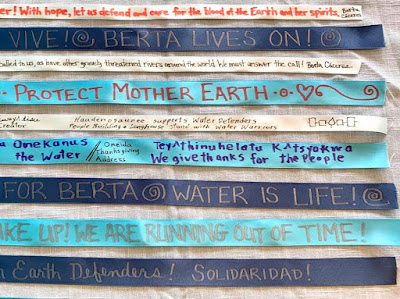 er! With hope, let us defend and care for the blood of the Earth and her spirits. Berta Cáceres
VIVE! BERTA LIVES ON!
called to us, as have other gravely threatened rivers around the world. We must answer the call! Berta Cáceres
PROTECT MOTHER EARTH
Creator
Haudenosaunee supports Water Defenders
People Building a Longhouse Stand with Water Warriors
a Onekanus
the Water
Oneida
Thanksgiving
Address
We give thanks for the People
FOR BERTA WATER IS LIFE!
AKE UP! WE ARE RUNNING OUT OF TIME!
Earth Defenders! SOLIDARIDAD!